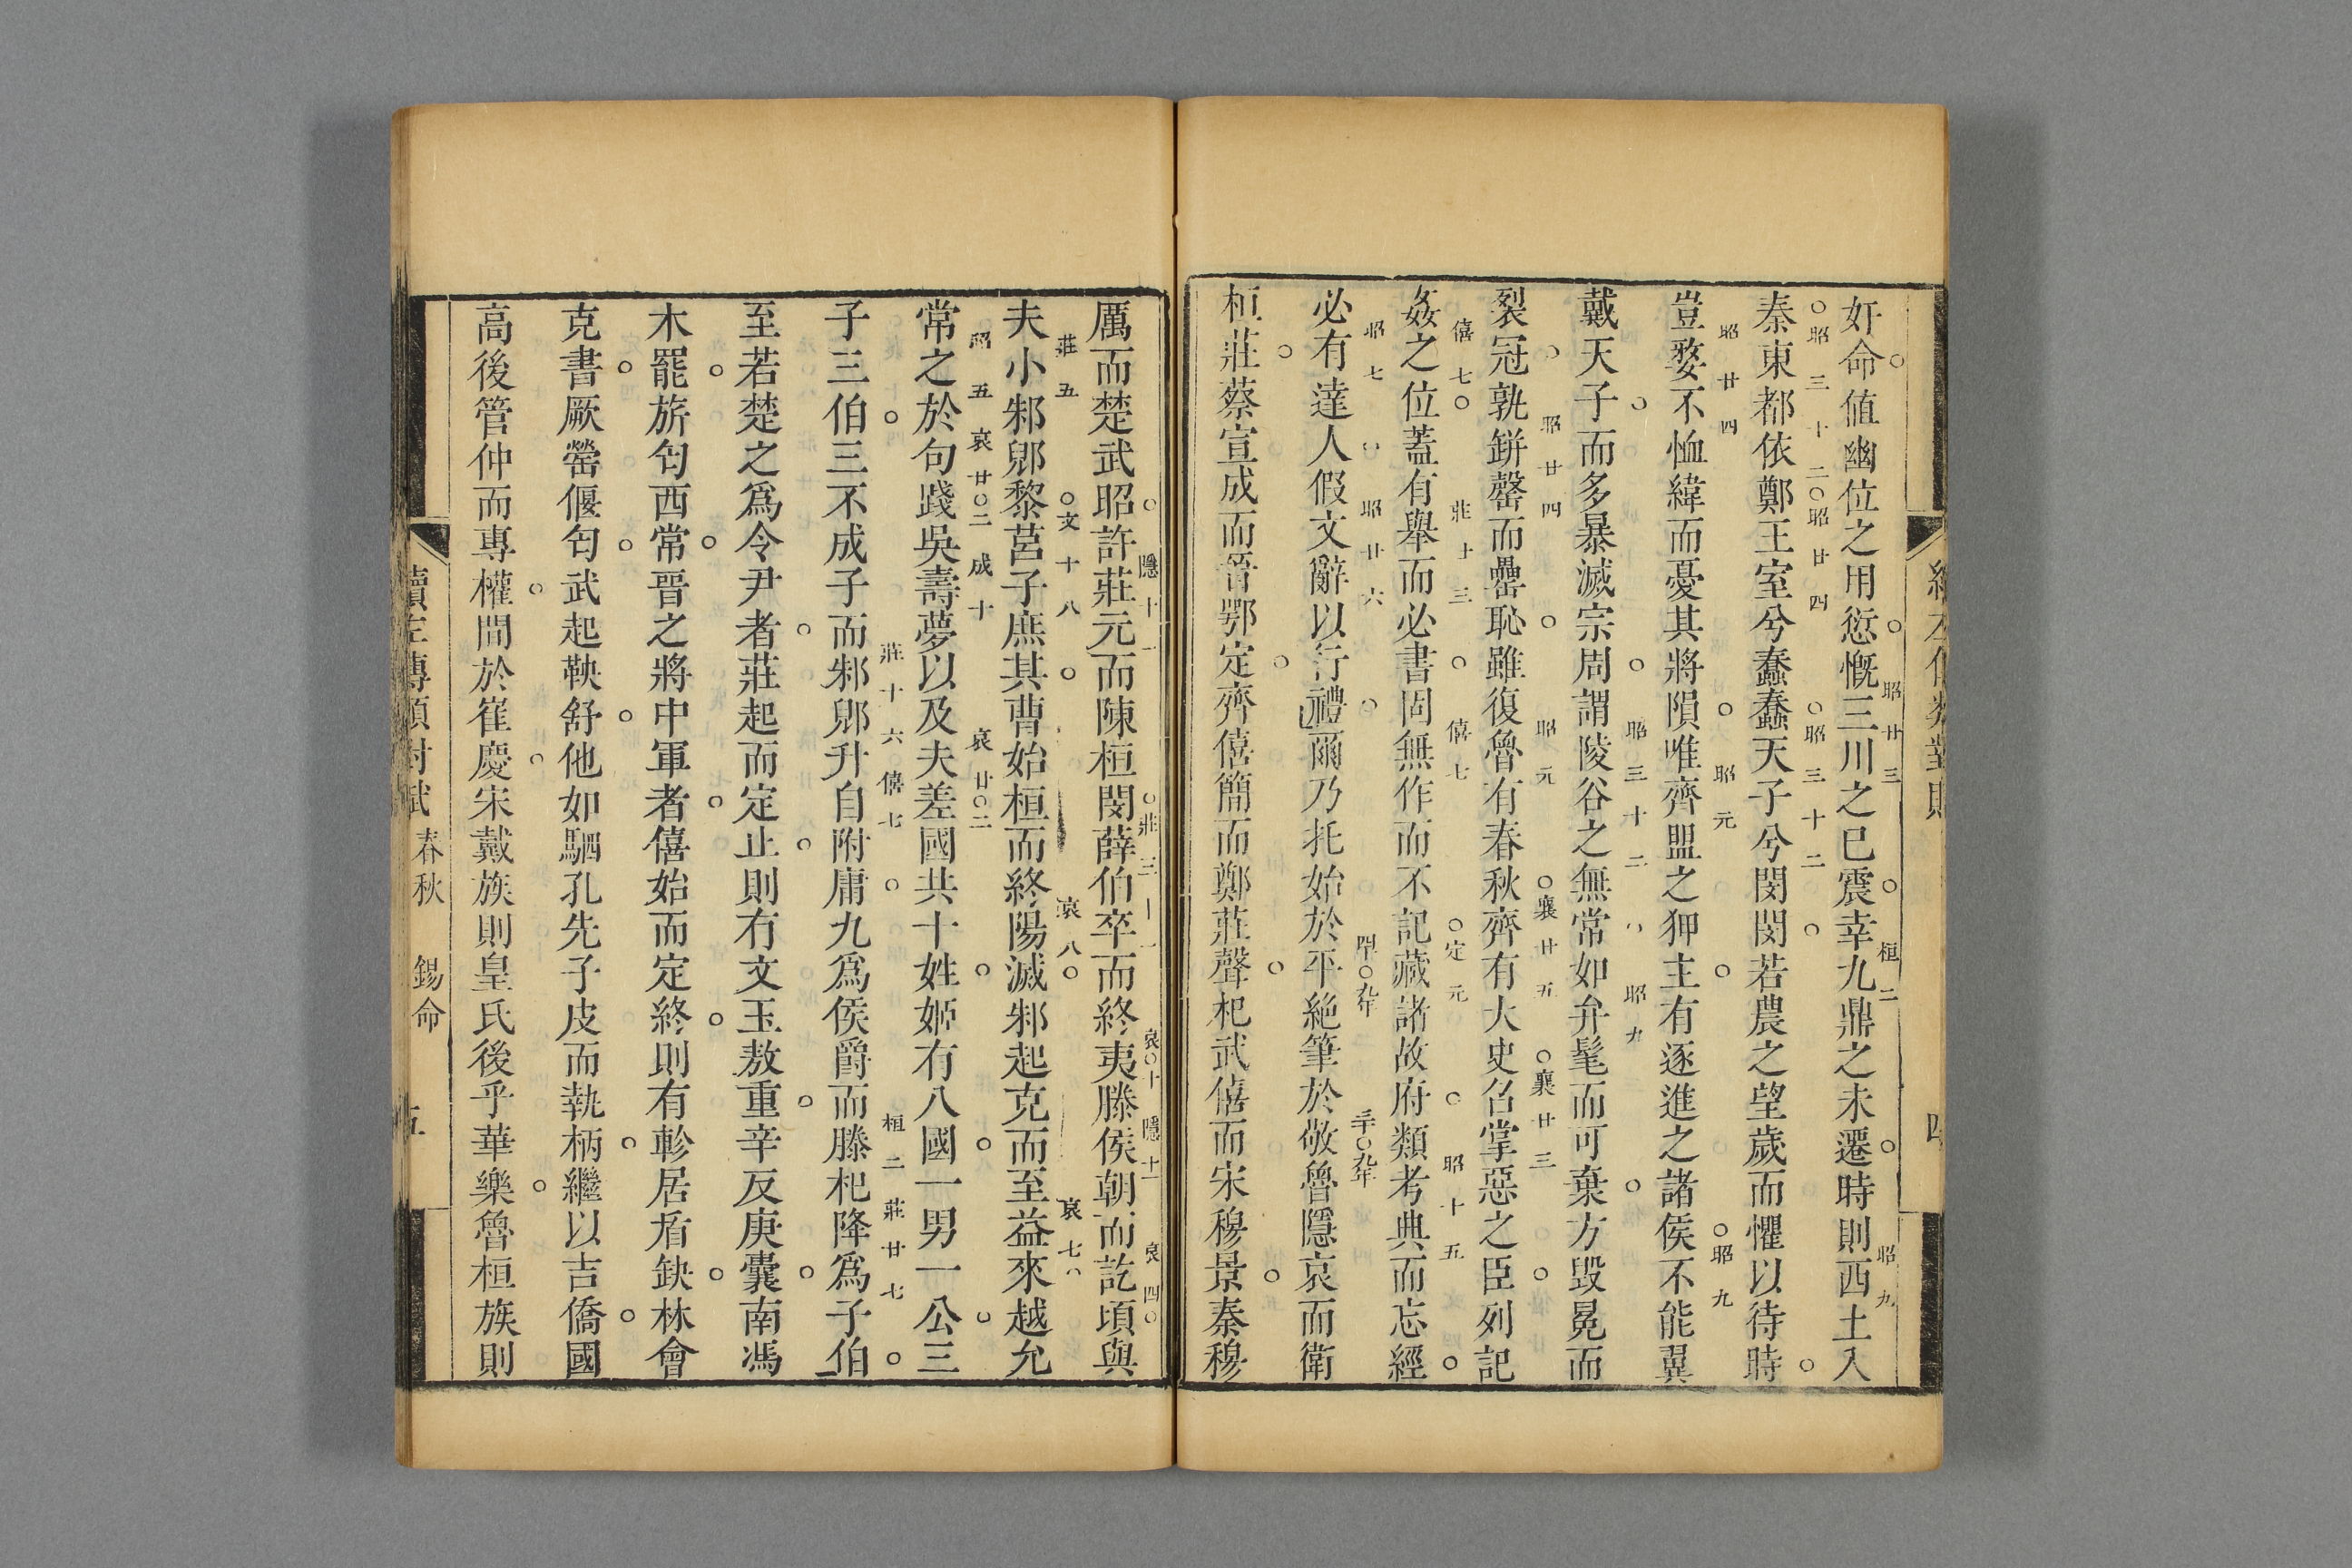 奸命値幽位之用愆慨三川之巳震幸九鼎之未遷時則西土入
秦東都依鄭王室兮蠢蠢天子兮閔閔若農之望歲而懼以待時
豈婺不恤緯而憂其將隕唯齊盟之狎主有逐進之諸侯不能翼
戴天子而多暴滅宗周謂陵谷之無常如弁髦而可棄方毀冕而
裂冠孰缾罄而罍恥雖復魯有春秋齊有大史召掌惡之臣列記
姦之位蓋有舉而必書固無作而不記藏諸故府類考典而忘經
必有達人假文辭以行禮爾乃托始於平絶筆於敬魯隱哀而衛
桓莊蔡宣成而晉鄂定齊僖簡而鄭莊聲杞武僖而宋穆景秦穆
厲而楚武昭許莊元而陳桓閔薛伯卒而終夷滕侯朝而訖頃與
夫小邾郳黎莒子庶其曹始桓而終陽滅邾起克而至益來越允
常之於句踐吳壽夢以及夫差國共十姓姬有八國一男一公三
子三伯三不成子而邾郳升自附庸九爲侯爵而滕杞降爲子伯
至若楚之爲令尹者莊起而定止則有文玉敖重辛反庚囊南馮
木罷旂匄西常晉之將中軍者僖始而定終則有軫居盾缺林會
克書厥罃偃匄武起鞅舒他如駟孔先子皮而執柄繼以吉僑國
高後管仲而專權間於崔慶宋戴族則皇氏後乎華樂魯桓族則
讀左傳類對賦 春秋 錫命 五